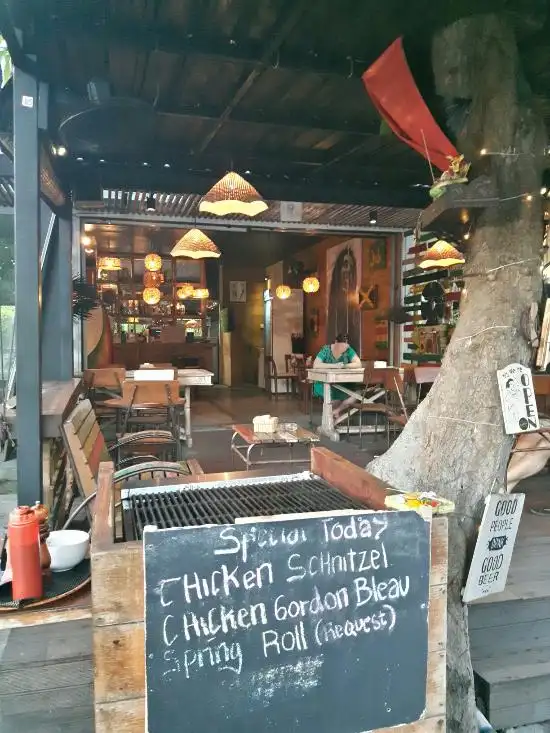 Special Today
CHicken SCHnitzel
CHicken Gordon Bleau
Spring Roll (Request)
OPEN
GOOD
PEOPLE
DRINK
GOOD
BEER